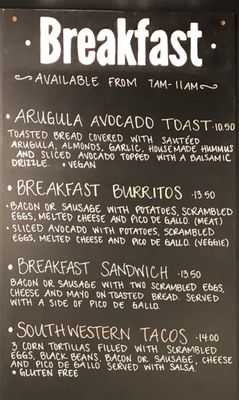 · Breakfast ·
~ AVAILABLE FROM 7AM-11AM ~
• ARUGULA AVOCADO TOAST · 10.50
TOASTED BREAD COVERED WITH SAUTÉED
ARUGULA, ALMONDS, GARLIC, HOUSEMADE HUMMUS
AND SLICED AVOCADO TOPPED WITH A BALSAMIC
DRIZZLE. • VEGAN
• BREAKFAST BURRITOS · 13.50
• BACON OR SAUSAGE WITH POTATOES, SCRAMBLED
EGGS, MELTED CHEESE AND PICO DE GALLO. (MEAT)
• SLICED AVOCADO WITH POTATOES, SCRAMBLED
EGGS, MELTED CHEESE AND PICO DE GALLO. (VEGGIE)
• BREAKFAST SANDWICH · 13.50
BACON OR SAUSAGE WITH TWO SCRAMBLED EGGS,
CHEESE AND MAYO ON TOASTED BREAD. SERVED
WITH A SIDE OF PICO DE GALLO.
• SOUTHWESTERN TACOS · 14.00
3 CORN TORTILLAS FILLED WITH SCRAMBLED
EGGS, BLACK BEANS, BACON OR SAUSAGE, CHEESE
AND PICO DE GALLO SERVED WITH SALSA.
• GLUTEN FREE